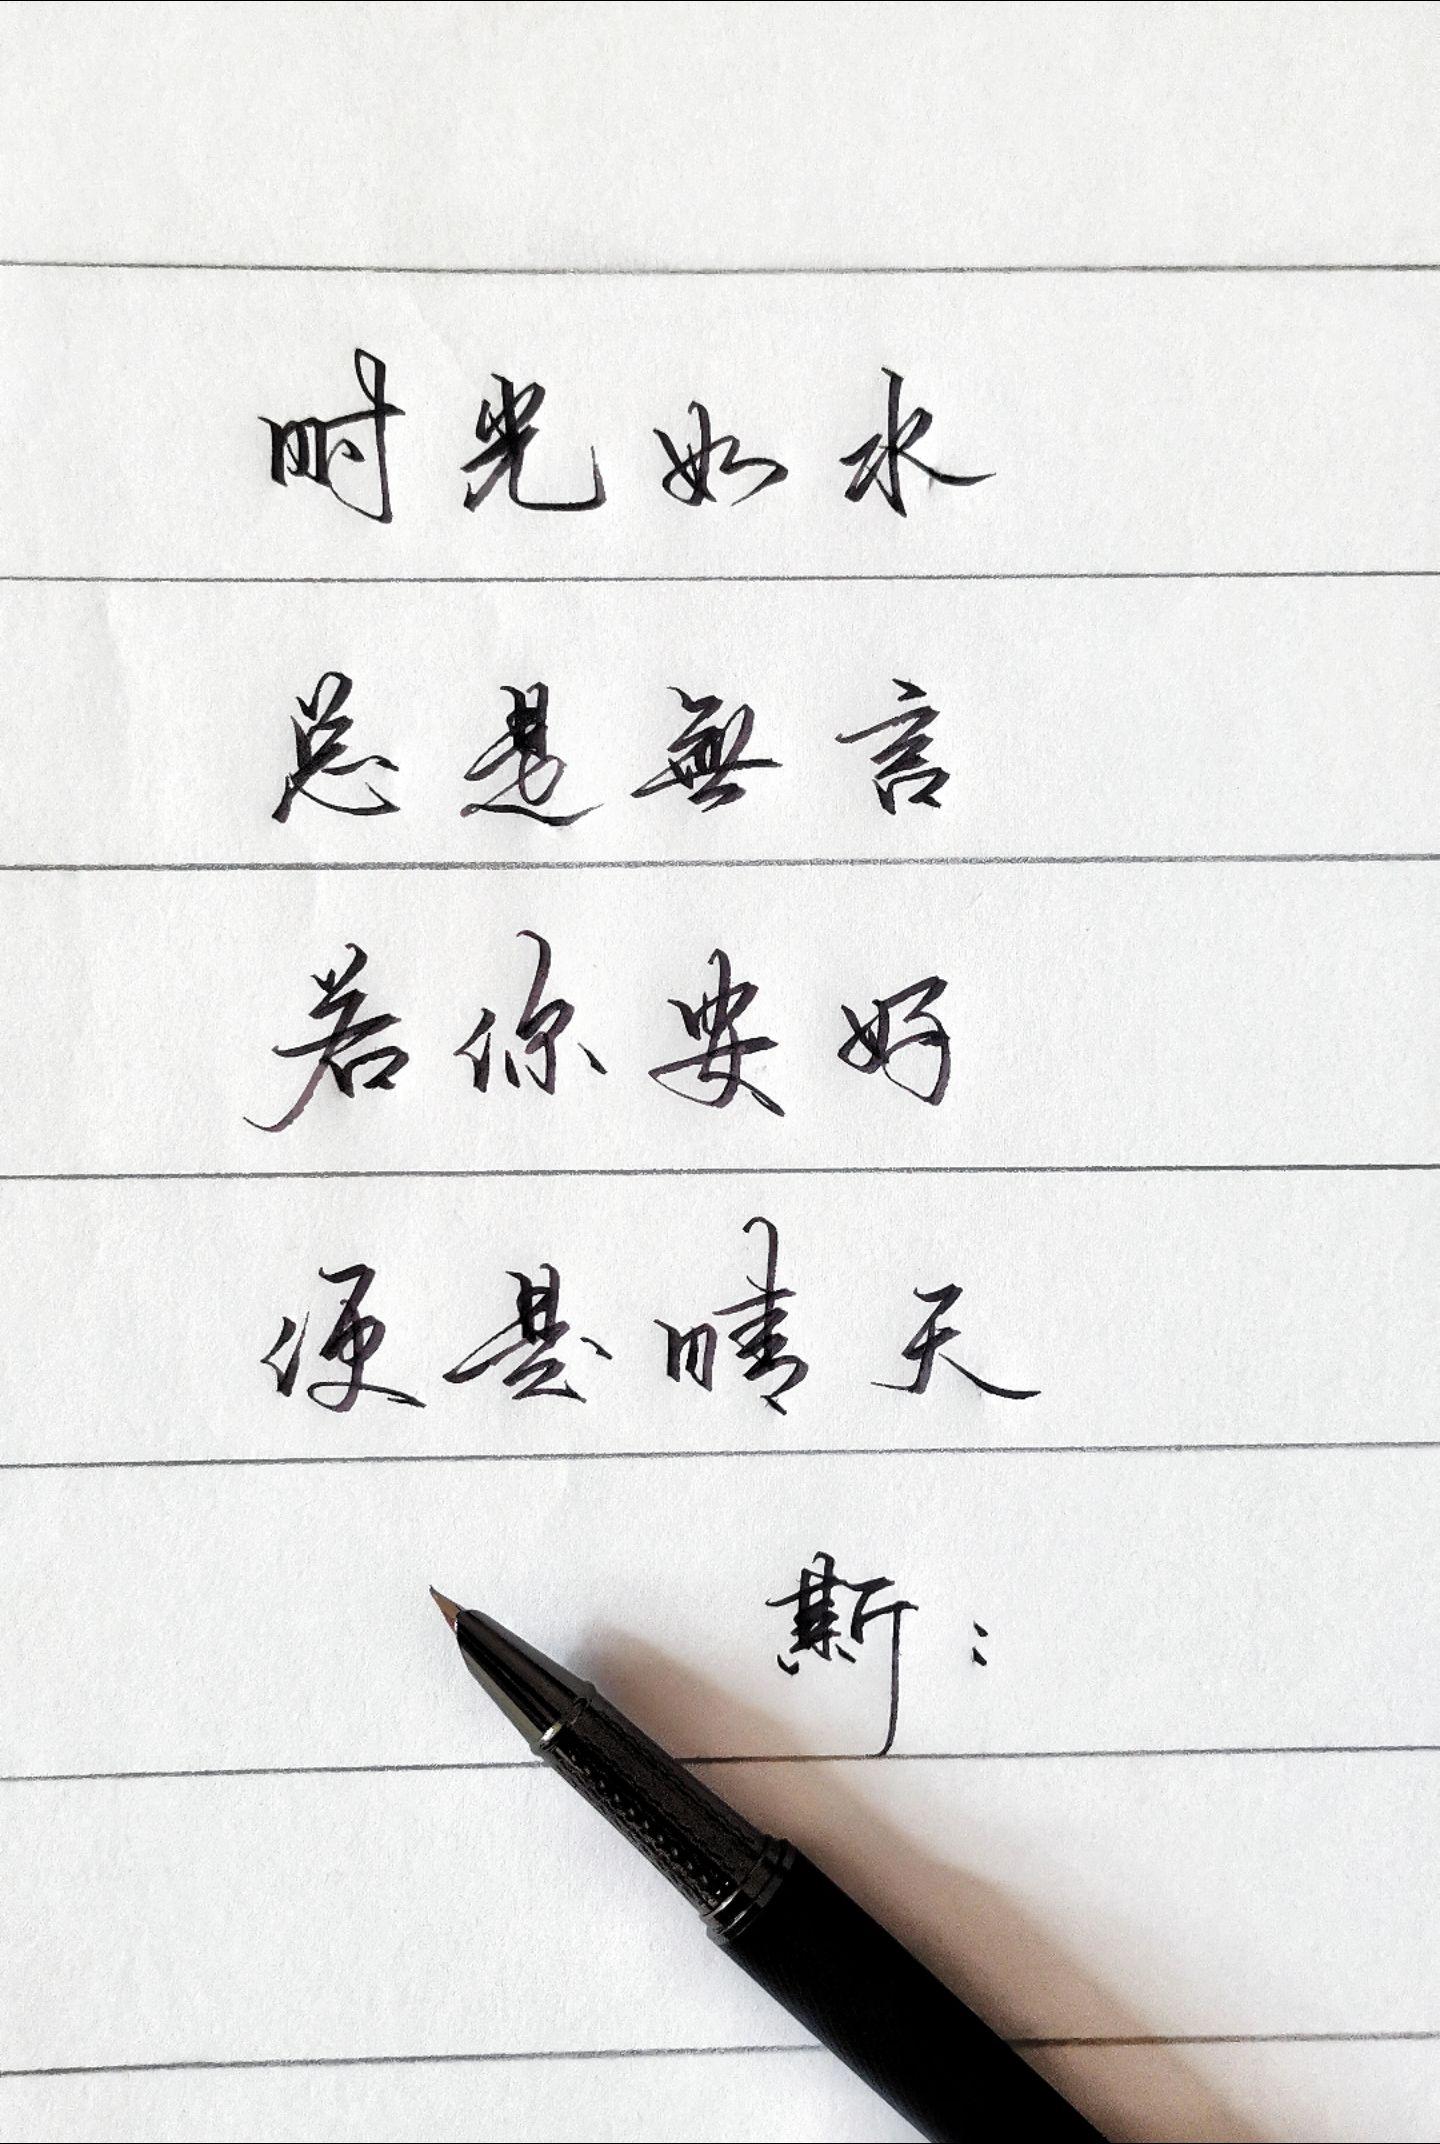 时光如水
总是無言
若你安好
便是晴天
斯: